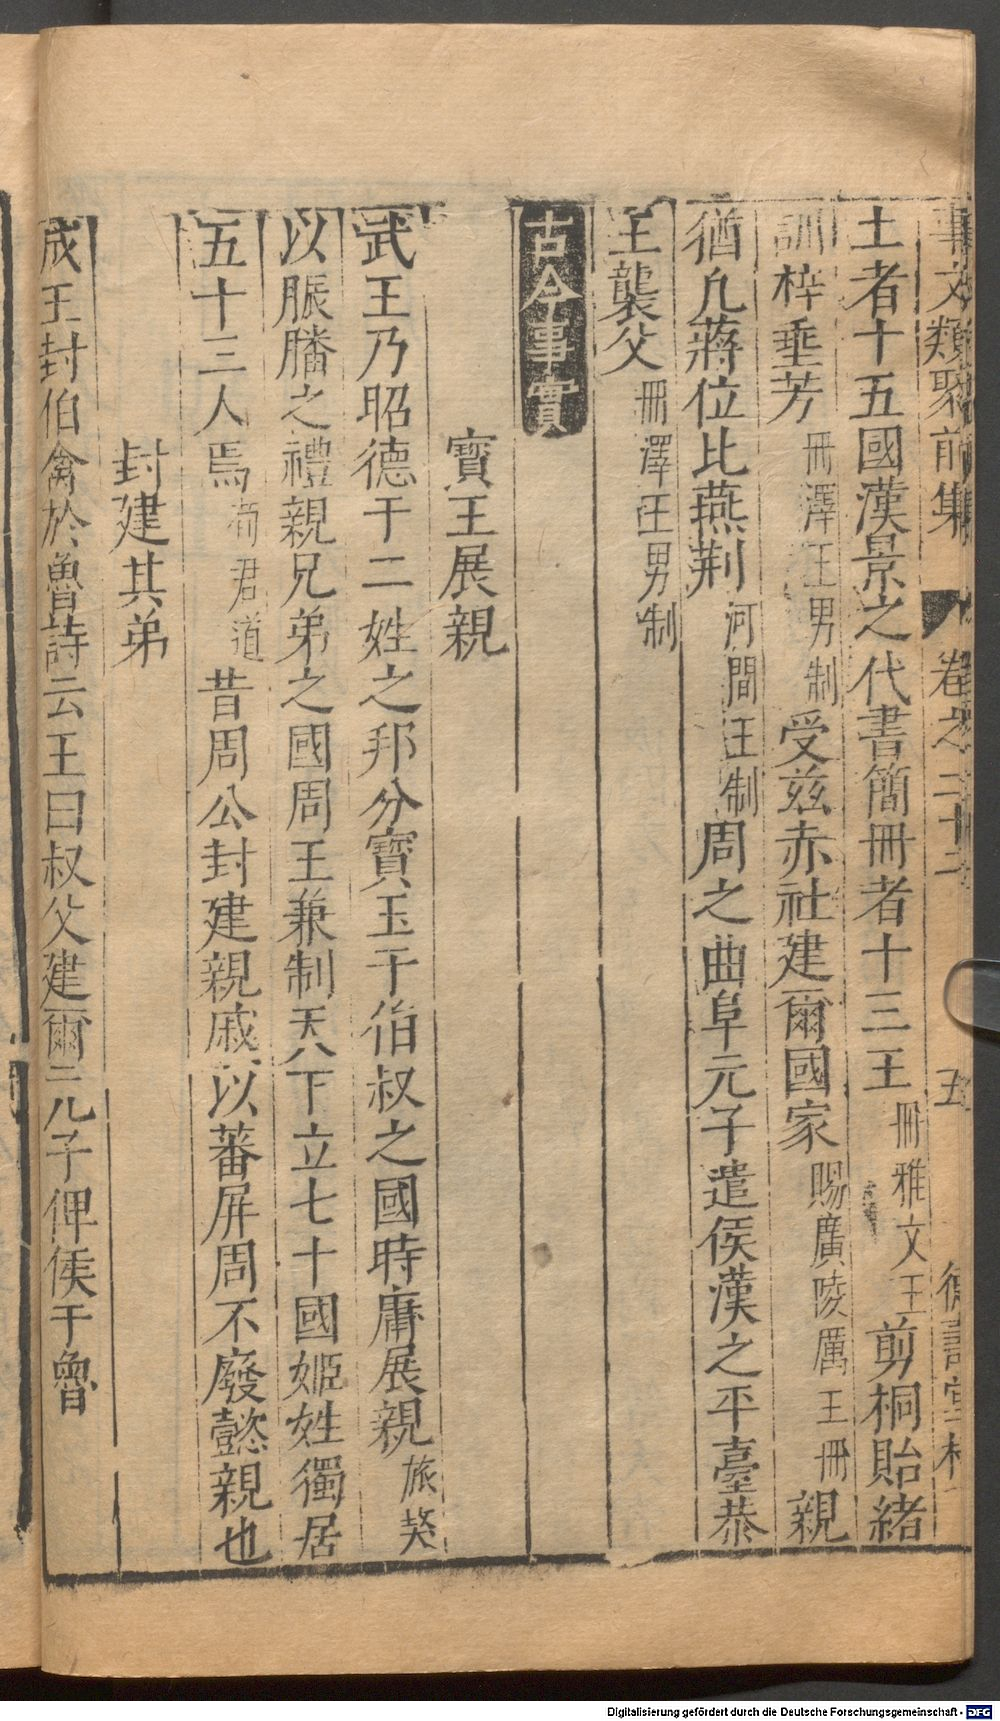 事文類聚前集 卷之二十二 五 德壽堂梓
土者十五國漢景之代書簡冊者十三王冊雅文王剪桐貽緒
訓梓垂芳冊澤王男制受兹赤社建爾國家賜廣陵厲王冊親
猶凡蔣位比燕荆河間王制周之曲阜元子遣侯漢之平臺恭
王襲父冊澤王男制
古今事實
寳王展親
武王乃昭德于二姓之邦分寳玉于伯叔之國時庸展親旅獒
以脤膰之禮親兄弟之國周王兼制天下立七十國姬姓獨居
五十三人焉荀君道昔周公封建親戚以蕃屏周不廢懿親也
封建其弟
成王封伯禽於魯詩云王曰叔父建爾元子俾侯于魯
Digitalisierung gefördert durch die Deutsche Forschungsgemeinschaft - DFG